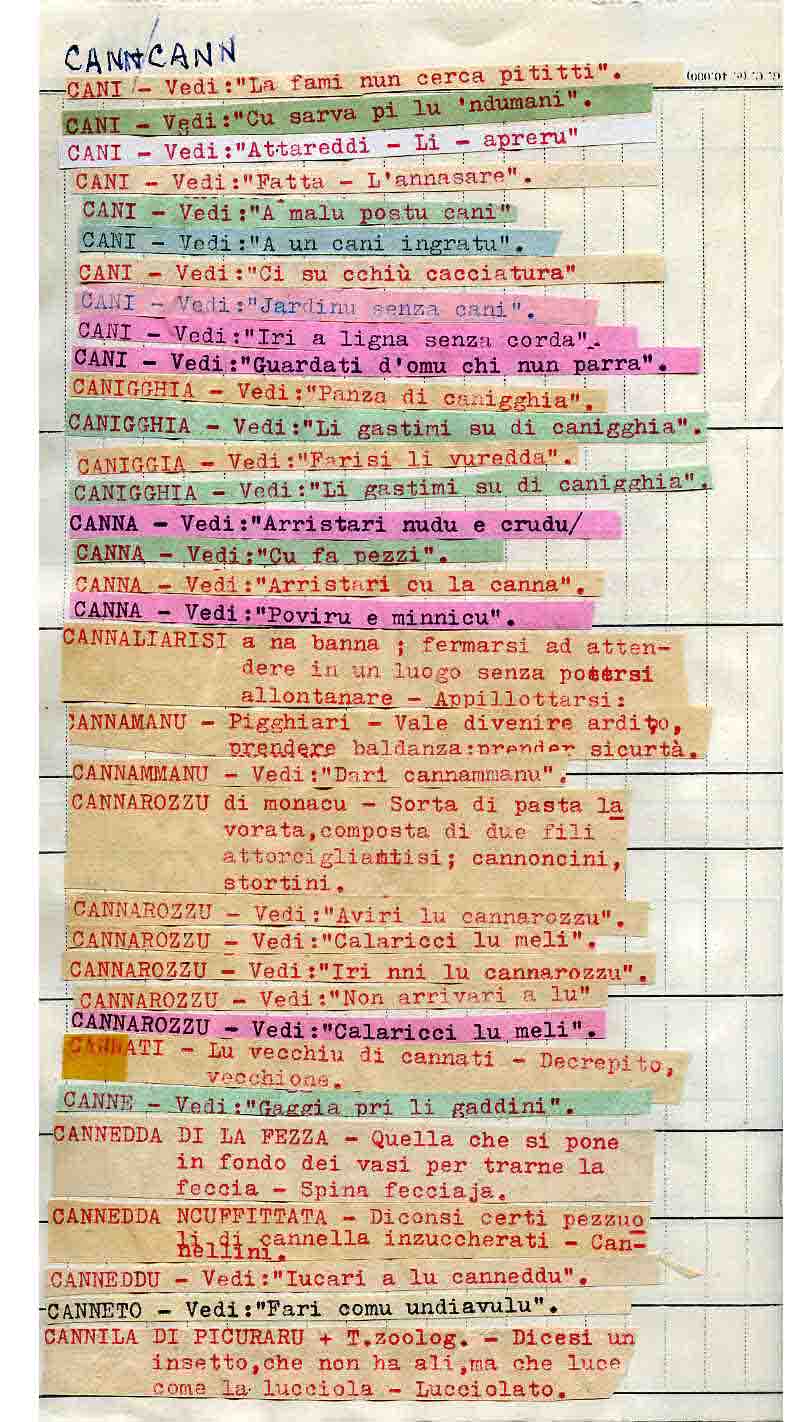 CANN/CANN
CANI - Vedi:"La fami nun cerca pititti".
CANI - Vedi:"Cu sarva pi lu 'ndumani".
CANI - Vedi:"Attareddi - Li - apreru"
CANI - Vedi:"Fatta - L'annasare".
CANI - Vedi:"A malu postu cani"
CANI - Vedi:"A un cani ingratu".
CANI - Vedi:"Ci su cchiù cacciatura"
CANI - Vedi:"Jardinu senza cani".
CANI - Vedi:"Iri a ligna senza corda".
CANI - Vedi:"Guardati d'omu chi nun parra".
CANIGGHIA - Vedi:"Panza di canigghia".
CANIGGHIA - Vedi:"Li gastimi su di canigghia".
CANIGGIA - Vedi:"Farisi li vuredda".
CANIGGHIA - Vedi:"Li gastimi su di canigghia".
CANNA - Vedi:"Arristari nudu e crudu/
CANNA - Vedi:"Cu fa pezzi".
CANNA - Vedi:"Arristari cu la canna".
CANNA - Vedi:"Poviru e minnicu".
CANNALIARISI a na banna ; fermarsi ad atten-
dere in un luogo senza potersi
allontanare - Appillottarsi:
CANNAMANU - Pigghiari - Vale divenire ardito,
prendere baldanza:prender sicurtà.
CANNAMMANU - Vedi:"Dari cannammanu".
CANNAROZZU di monacu - Sorta di pasta la
vorata,composta di due fili
stortini.
CANNAROZZU - Vedi:"Aviri lu cannarozzu".
CANNAROZZU - Vedi:"Calaricci lu meli".
CANNAROZZU - Vedi:"Iri nni lu cannarozzu".
CANNAROZZU - Vedi:"Non arrivari a lu"
CANNAROZZU - Vedi:"Calaricci lu meli".
CANNATI - Lu vecchiu di cannati - Decrepito,
vecchione.
CANNE - Vedi:"Gaggia pri li gaddini".
CANNEDDA DI LA FEZZA - Quella che si pone
in fondo dei vasi per trarne la
feccia - Spina fecciaja.
CANNEDDA NCUFFITTATA - Diconsi certi pezzuo
li di cannella inzuccherati - Can-
nellini.
CANNEDDU - Vedi:"Iucari a lu canneddu".
CANNETO - Vedi:"Fari comu undiavulu".
CANNILA DI PICURARU + T.zoolog. - Dicesi un
insetto,che non ha ali,ma che luce
come la lucciola - Lucciolato.